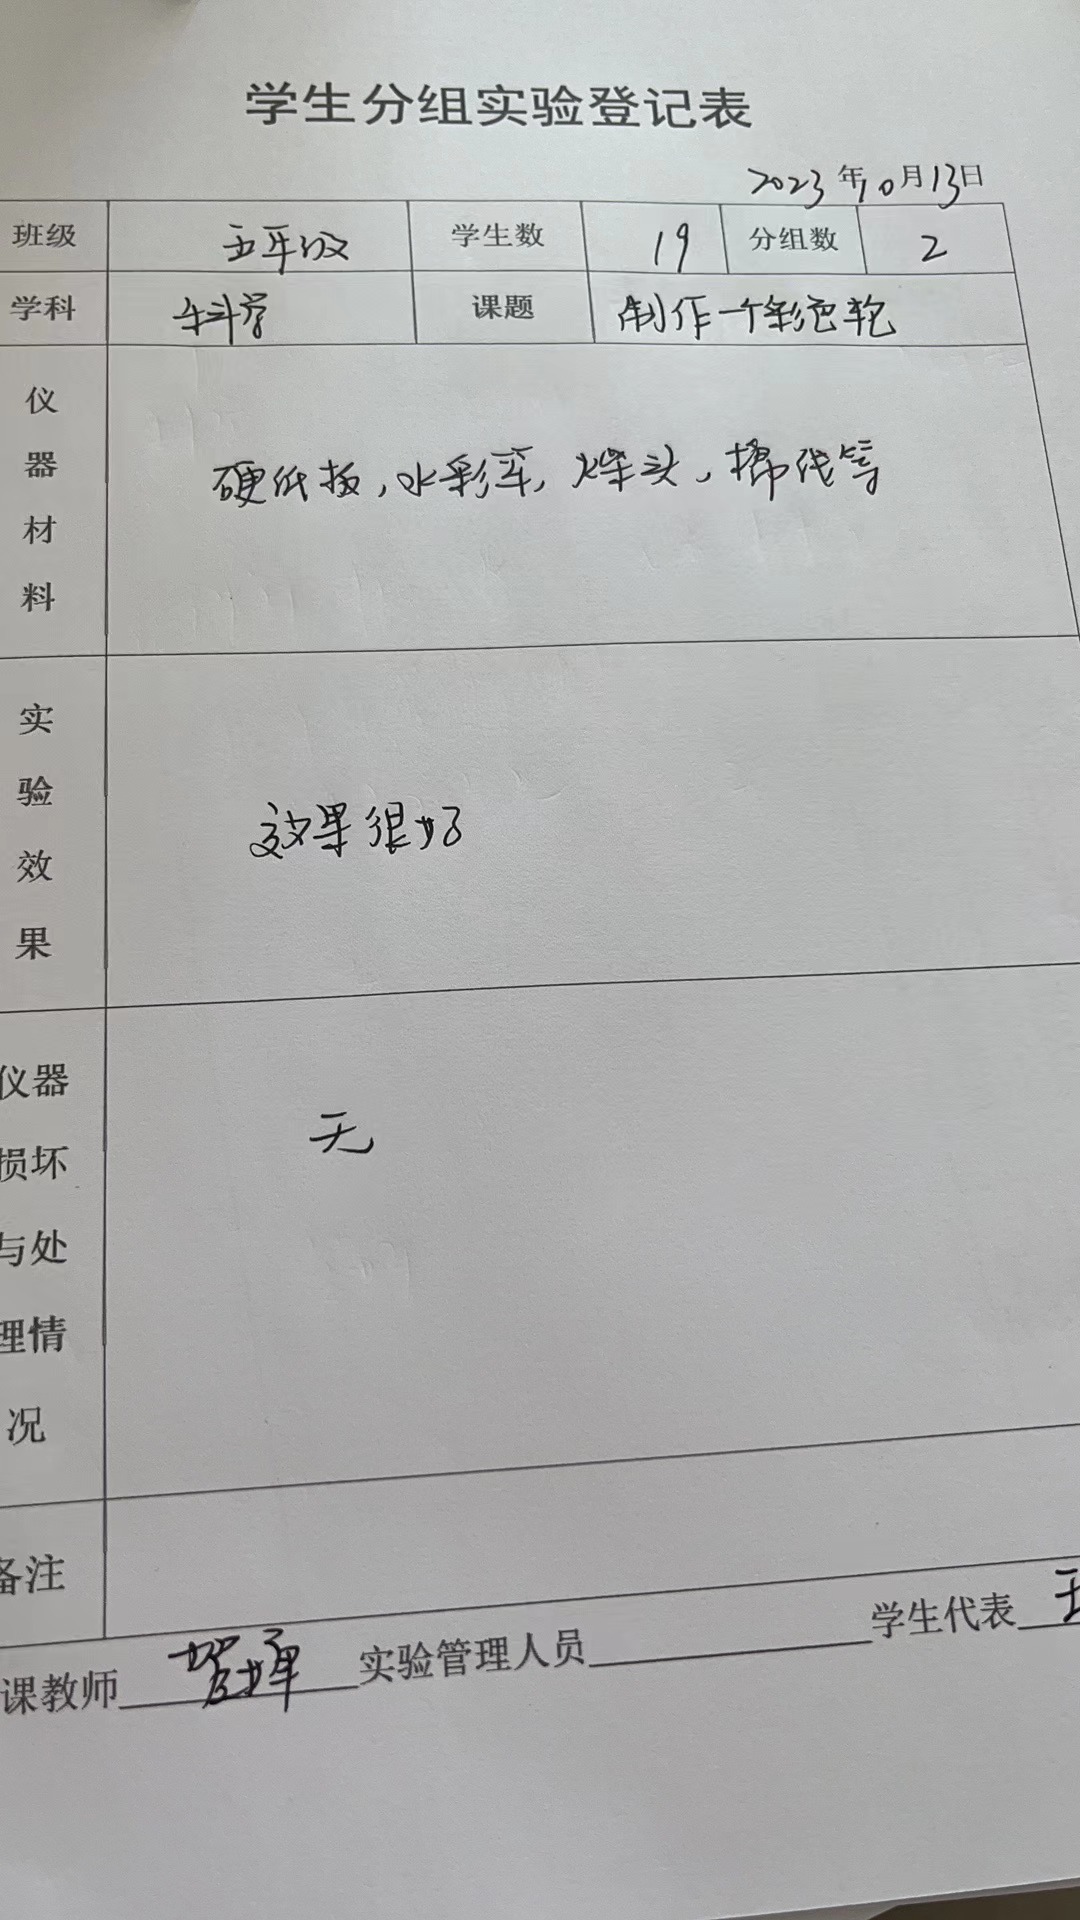 学生分组实验登记表
2023年10月13日
班级 五年级 学生数 19 分组数 2
学科 科学 课题 制作一个彩色轮
仪器材料 硬纸板,水彩笔,火柴头,棉线等
实验效果 效果很好
仪器损坏与处理情况 无
备注
课教师 实验管理人员 学生代表